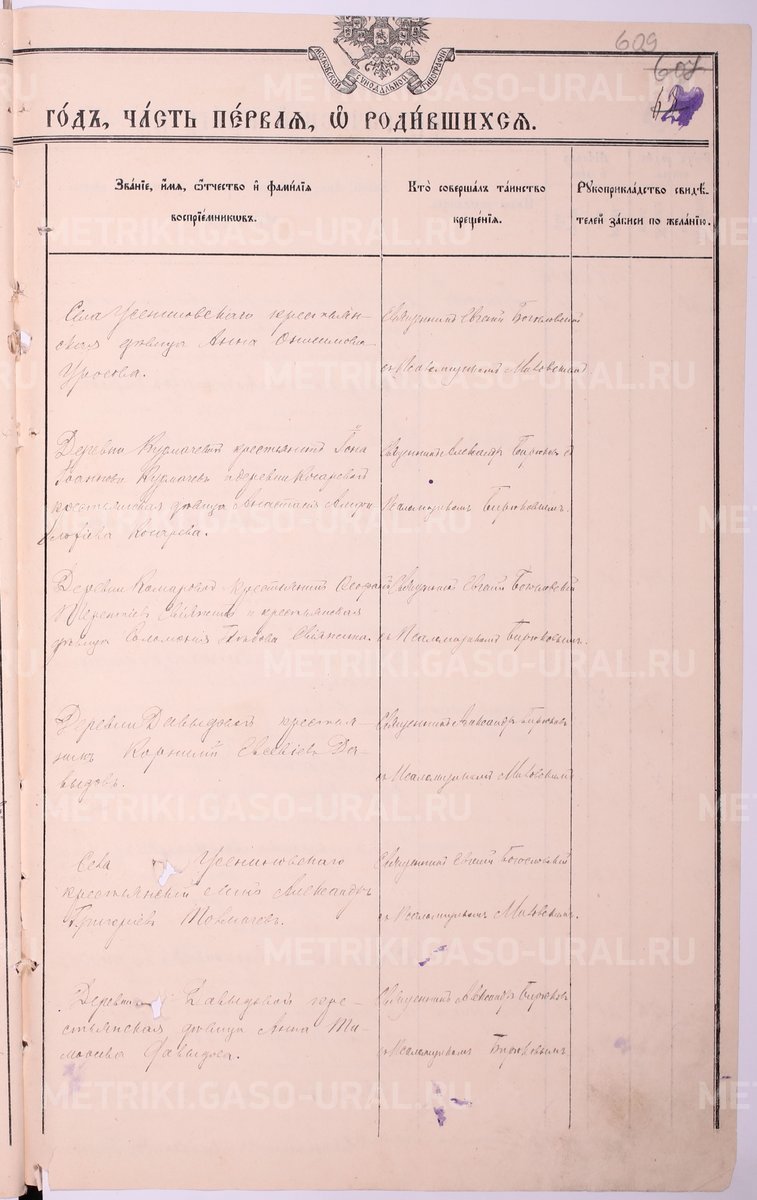 609
607
МОСКОВСКОЙ СѴНОДАЛЬНОЙ ТИПОГРАФІИ
ГО́ДЪ, ЧА́СТЬ ПЕ́РВАЯ, Ѽ РОДИ́ВШИХСЯ.
Зва́нїе, и҆́мя, ѻ҆́тчество и҆ фами́лїя
воспрїе́мникѡвъ.
Кто̀ соверша́лъ та́инство
креще́нїя.
Рꙋкоприкла́дство свидѣ́-
телей за́писи по жела́нїю.
Села Усениновскаго крестьян-
ская дѣвица Анна Онисимова
Священникъ Евгеній Богословской
съ Псаломщикомъ Маковскимъ
Деревни Кузмачевой крестьянинъ Іона
Іоанновъ Кузмачевъ и деревни Косаревой
крестьянская дѣвица Анастасія
Косарева.
Священникъ Александръ Бирюковъ съ
Псаломщикомъ Бирюковымъ
Деревни Комаровой крестьянинъ
Терентіевъ и крестьянская
дѣвица Соломонія Глѣбова
Священникъ Евгеній Богословскій
съ Псаломщикомъ Бирюковымъ.
Деревни Давыдовой крестья-
нинъ Корнилій Евсевіевъ Да-
выдовъ.
Священникъ Александръ Бирюковъ
съ Псаломщикомъ Маковскимъ
Села Усениновскаго
крестьянскій сынъ Александръ
Григоріевъ Толмачевъ.
Священникъ Евгеній Богословскій
съ Псаломщикомъ Маковскимъ.
Деревни Давыдовой кре-
стьянская дѣвица Анна Ти-
моѳеева Давыдова.
Священникъ Александръ Бирюковъ
съ Псаломщикомъ Бирюковымъ
METRIKI.GASO-URAL.RU